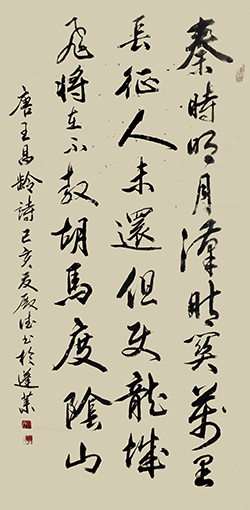 秦時明月漢時關萬里
長征人未還但使龍城
飛將在不教胡馬度陰山
唐王昌齡詩己亥夏書於蓬萊